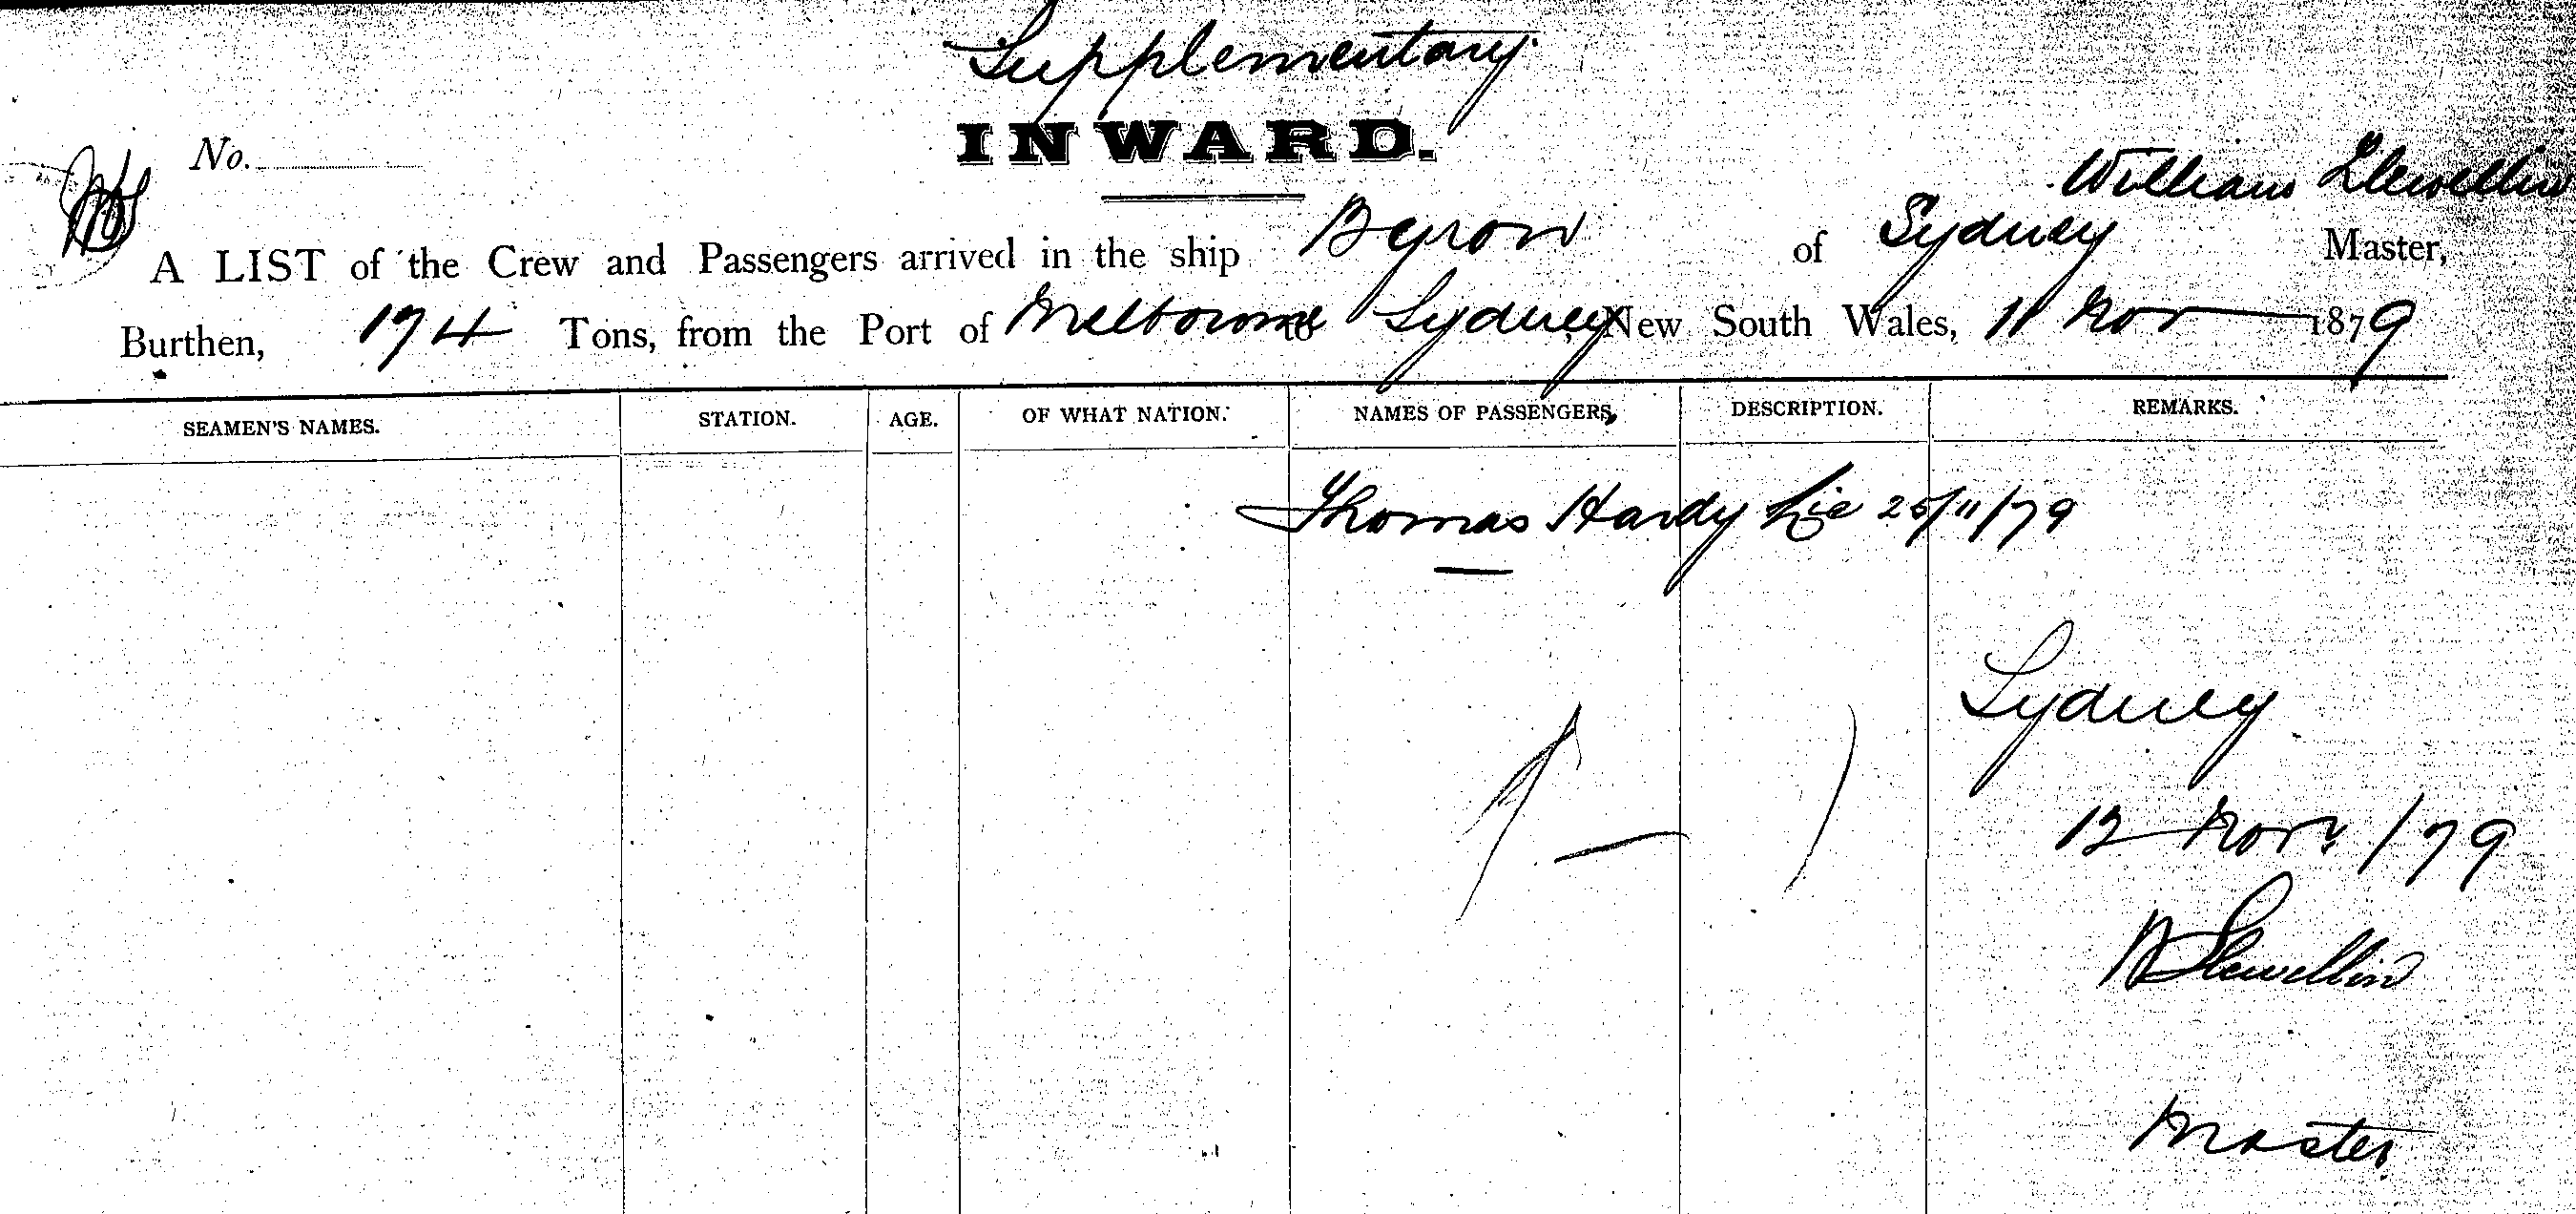 Supplementary
INWARD.
No.
William Llewellin
A LIST of the Crew and Passengers arrived in the ship Byron of Sydney Master,
Burthen, 174 Tons, from the Port of Melbourne to Sydney, New South Wales, 11 Nov 1879
SEAMEN'S NAMES. STATION. AGE. OF WHAT NATION. NAMES OF PASSENGERS, DESCRIPTION. REMARKS.
Thomas Hardy 25/11/79
Sydney
12 Novr /79
W Llewellin
Master